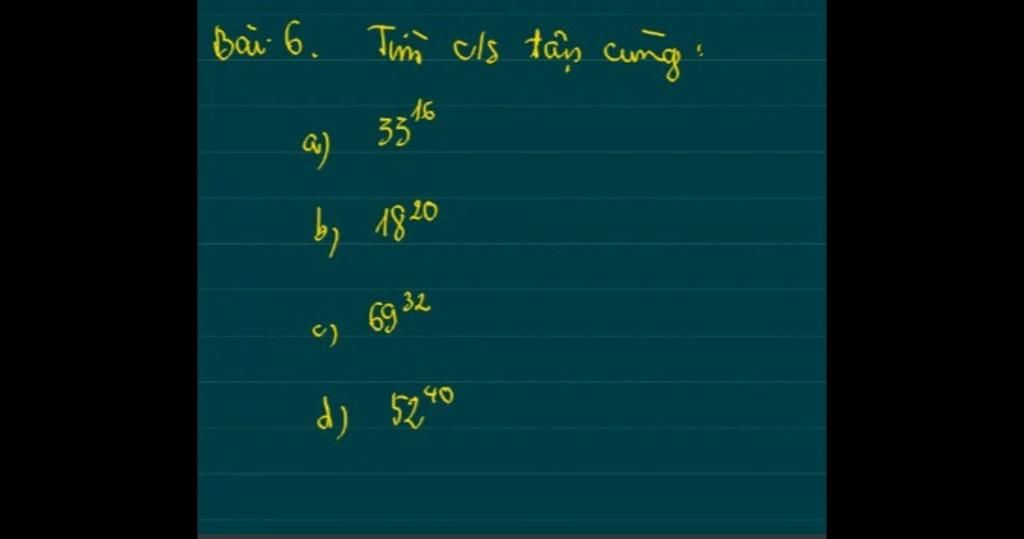 Bài 6. Tìm c/s tận cùng:
a) 33^16
b) 18^20
c) 69^32
d) 52^40